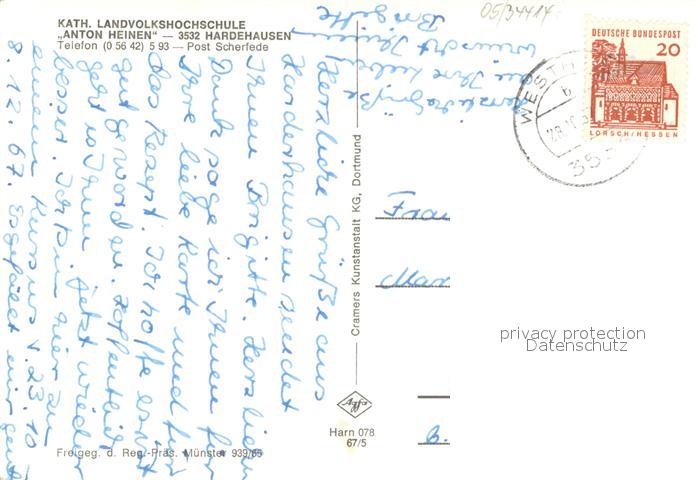 KATH. LANDVOLKSHOCHSCHULE
„ANTON HEINEN" — 3532 HARDEHAUSEN
Telefon (0 56 42) 5 93 — Post Scherfede
05/34414
DEUTSCHE BUNDESPOST
20
LORSCH/HESSEN
WESTH
353
Herzliche Grüße aus
Hardehausen sendet
Ihnen Brigitte. Herzlichen
Dank sage ich Ihnen für
Ihre liebe Karte und für
das Rezept. Ich hoffe es ist
gut geworden. Hoffentlich
geht es Ihnen jetzt wieder
besser. Ich bin hier zu
einem Kursus v. 23.10
8.12.67. Es gefällt mir gut
Herzliche Grüße
Brigitte
Cramers Kunstanstalt KG, Dortmund
Frau
Mar
privacy protection
Datenschutz
Agfa
Harn 078
67/5
Freigeg. d. Reg.-Präs. Münster 939/65